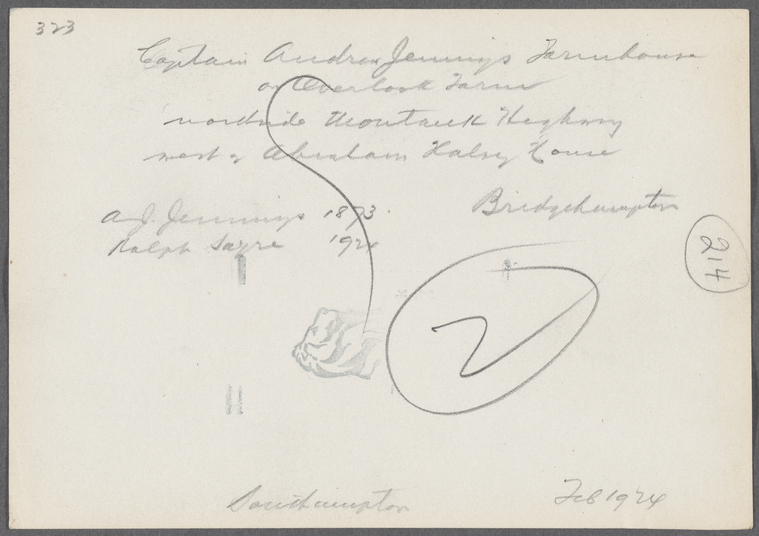 323
Captain Andrew Jennings Farmhouse
on Overlook Farm
northside Montauk Highway
west of Abraham Halsey House
Bridgehampton
A.J. Jennings 1873
Ralph Sayre 192
214
2
Southampton
Feb 1924